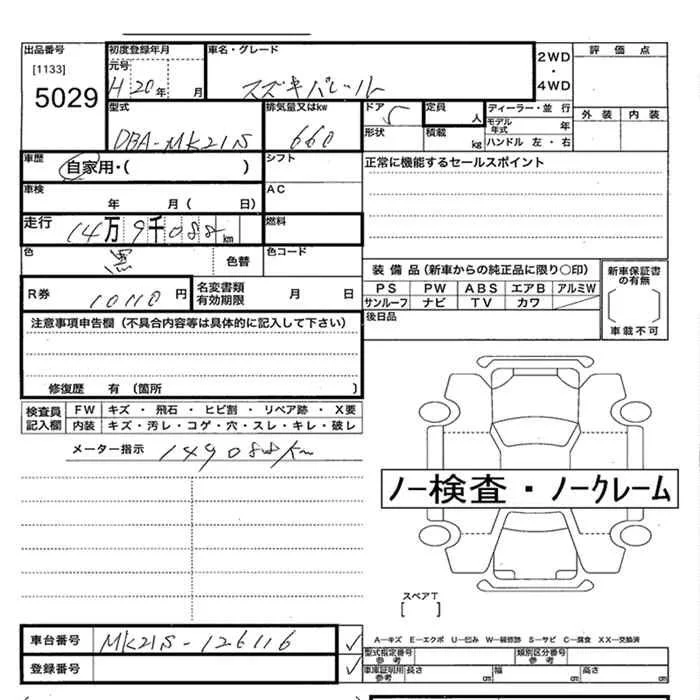 出品番号
[1133]
5029
初度登録年月
元号
H 20 年 月
車名・グレード
スズキパレット
2WD
・
4WD
評価点
外装 内装
型式
DBA-MK21S
排気量又はkw
660
ドア
5
形状
定員
人
積載
kg
ディーラー・並行
モデル年式 年
ハンドル 左・右
車歴
自家用・( )
シフト
正常に機能するセールスポイント
車検
年 月( 日)
AC
走行
14万9千088km
燃料
色
黒
色替
色コード
R券
10110 円
名変書類
有効期限
月 日
装備品(新車からの純正品に限り○印)
PS PW ABS エアB アルミW
サンルーフ ナビ TV カワ
新車保証書
の有無
車載不可
後日品
注意事項申告欄(不具合内容等は具体的に記入して下さい)
修復歴 有(箇所 )
検査員
記入欄
FW キズ・飛石・ヒビ割・リペア跡・X要
内装 キズ・汚レ・コゲ・穴・スレ・キレ・破レ
メーター指示 149088km
ノー検査・ノークレーム
スペアT
[ ]
車台番号 MK21S-126116 ✓
登録番号 ✓
A-キズ E-エクボ U-凹み W-補修跡 S-サビ C-腐食 XX-交換済
型式指定番号
参考
類別区分番号
参考
車庫証明用
参考
長さ cm 幅 cm 高さ cm